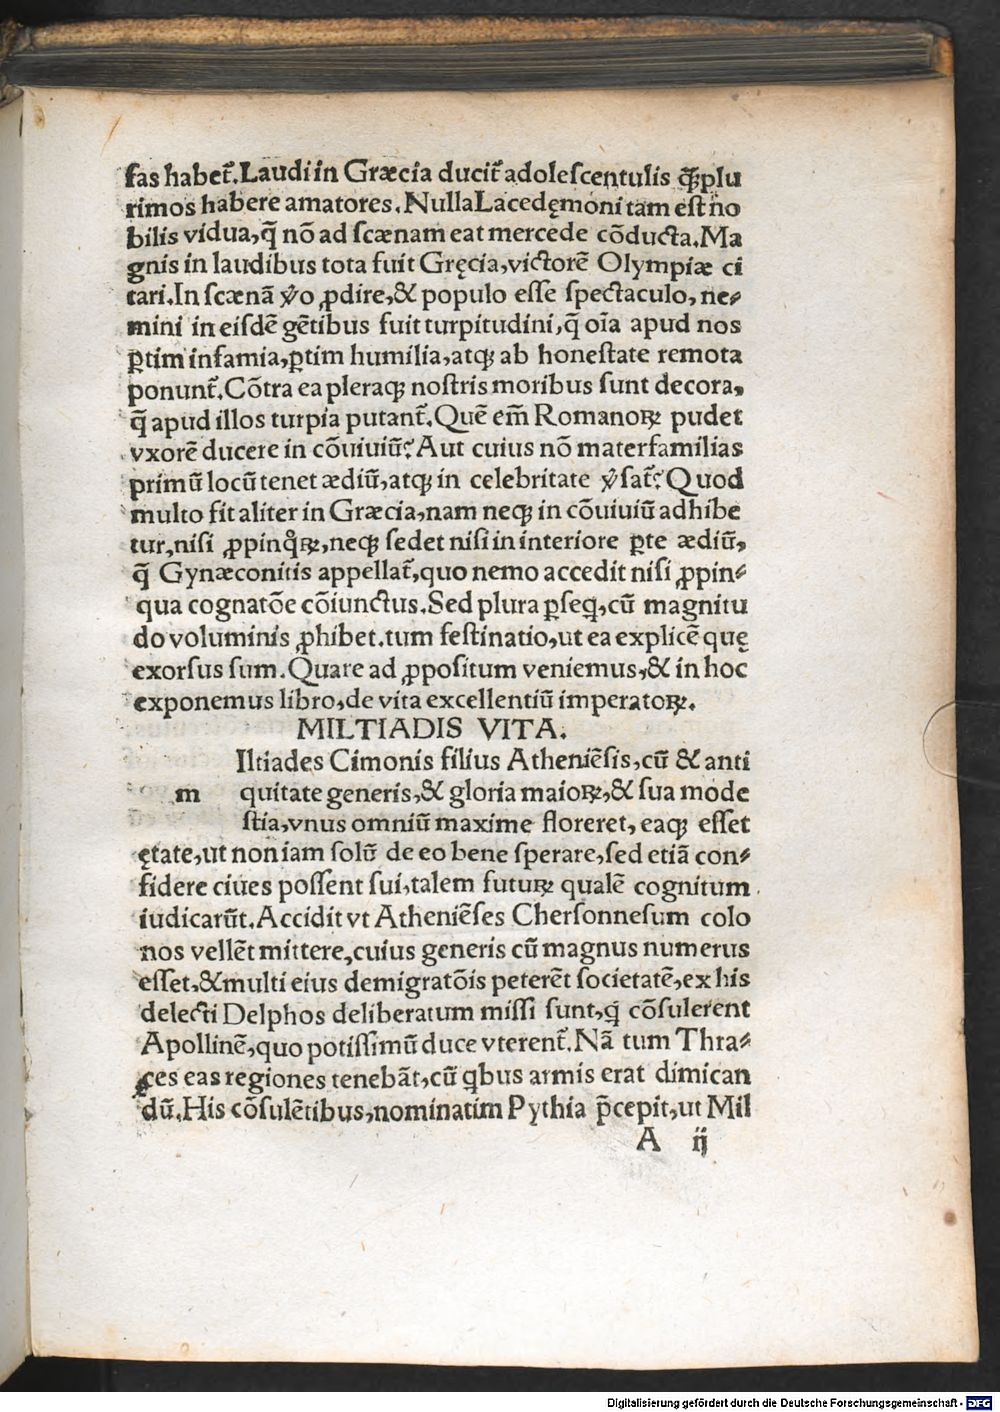 fas habet᷑. Laudi in Græcia ducit᷑ adolescentulis q̃ꝫ plu
rimos habere amatores. Nulla Lacedęmoni tam est no
bilis vidua, q̃ nõ ad scænam eat mercede cõducta. Ma
gnis in laudibus tota fuit Gręcia, victorẽ Olympiæ ci
tari. In scænã ꝟo ꝓdire, & populo esse spectaculo, ne⸗
mini in eisdẽ gẽtibus fuit turpitudini, q̃ oĩa apud nos
ꝑtim infamia, ꝑtim humilia, atqꝫ ab honestate remota
ponunt᷑. Cõtra ea pleraqꝫ nostris moribus sunt decora,
q̃ apud illos turpia putant᷑. Quẽ em̃ Romanoꝝ pudet
vxorẽ ducere in cõuiuiũ? Aut cuius nõ materfamilias
primũ locũ tenet ædiũ, atqꝫ in celebritate ꝟsat᷑? Quod
multo fit aliter in Græcia, nam neqꝫ in cõuiuiũ adhibe
tur, nisi ꝓpinq̊ꝝ, neqꝫ sedet nisi in interiore ꝑte ædiũ,
q̃ Gynæconitis appellat᷑, quo nemo accedit nisi ꝓpin⸗
qua cognatõe cõiunctus. Sed plura ꝑseq, cũ magnitu
do voluminis ꝓhibet. tum festinatio, ut ea explicẽ quę
exorsus sum. Quare ad ꝓpositum veniemus, & in hoc
exponemus libro, de vita excellentiũ imperatoꝝ.
MILTIADIS VITA.
Iltiades Cimonis filius Atheniẽsis, cũ & anti
m quitate generis, & gloria maioꝝ, & sua mode
stia, vnus omniũ maxime floreret, eaqꝫ esset
ętate, ut non iam solũ de eo bene sperare, sed etiã con⸗
fidere ciues possent sui, talem futuꝝ qualẽ cognitum
iudicarũt. Accidit vt Atheniẽses Chersonnesum colo
nos vellẽt mittere, cuius generis cũ magnus numerus
esset, & multi eius demigratõis peterẽt societatẽ, ex his
delecti Delphos deliberatum missi sunt, q̇ cõsulerent
Apollinẽ, quo potissimũ duce vterent᷑. Nã tum Thra⸗
ces eas regiones tenebãt, cũ q̇bus armis erat dimican
dũ. His cõsulẽtibus, nominatim Pythia p̃cepit, ut Mil
A ij
Digitalisierung gefördert durch die Deutsche Forschungsgemeinschaft - DFG